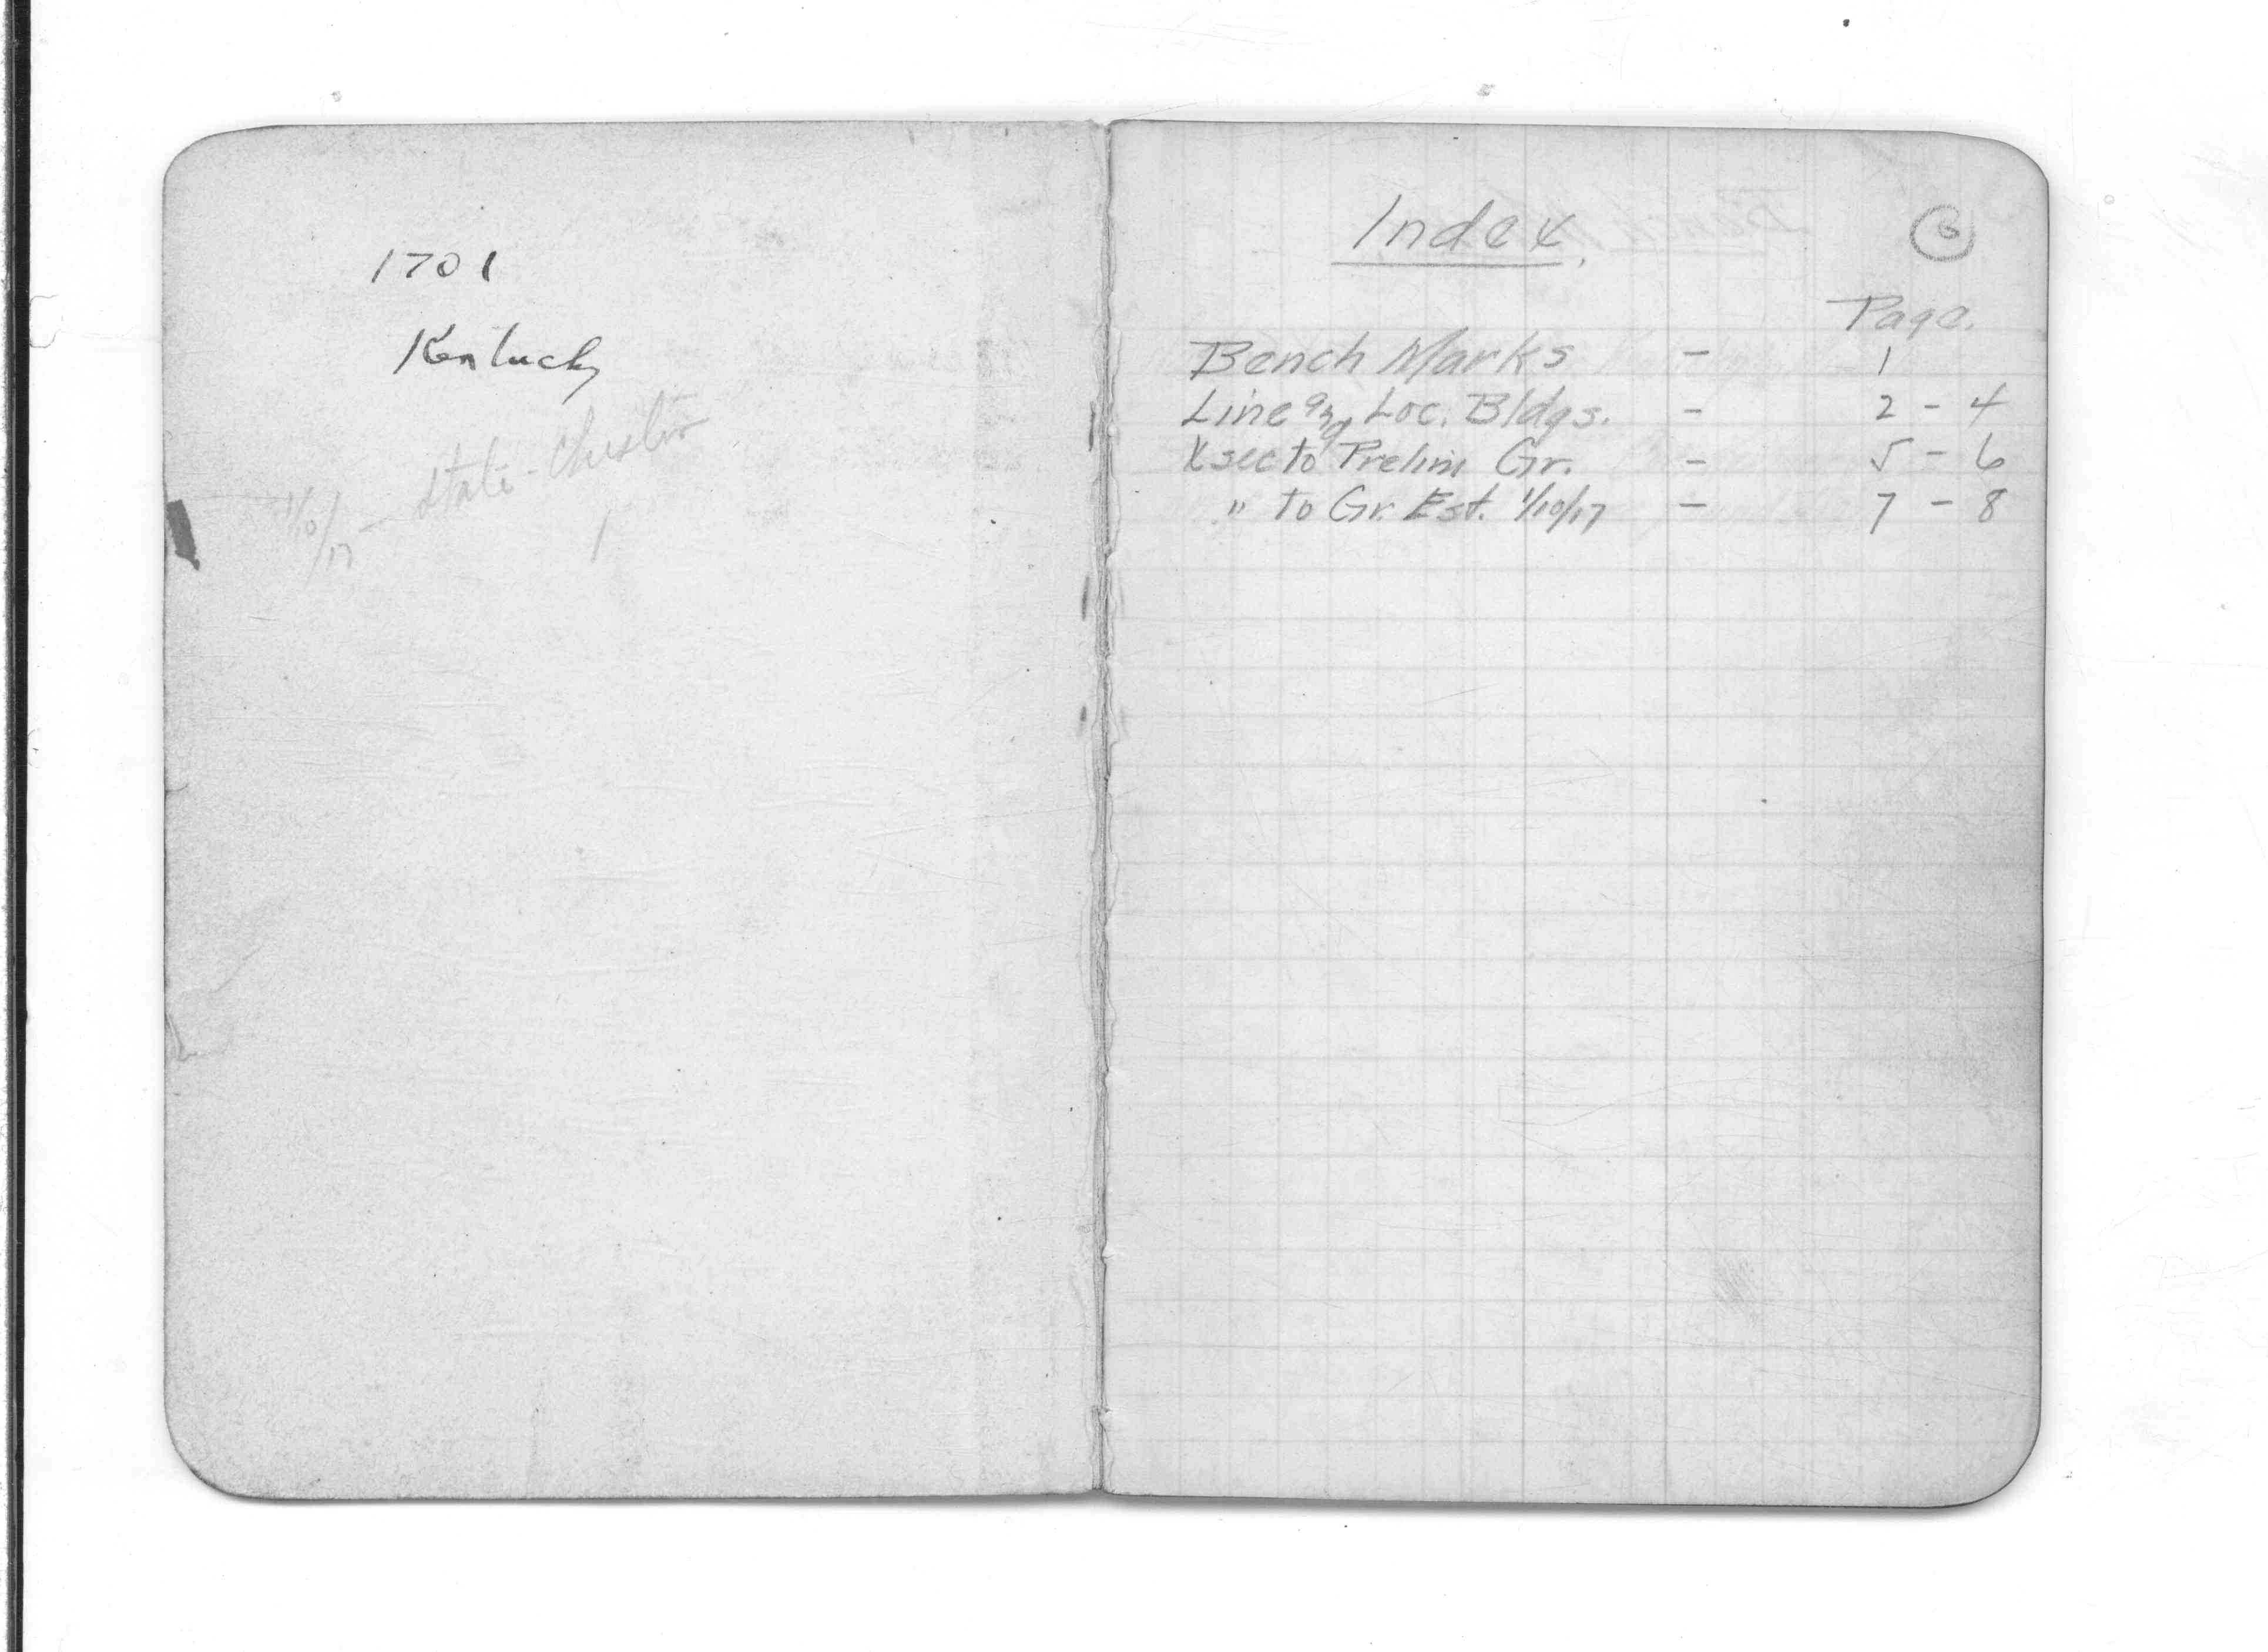 1701
Kentucky
1/10/17 - State - Chester
Index.
G
Page.
Bench Marks - 1
Line and Loc. Bldgs. - 2 - 4
Xsec to Prelim Gr. - 5 - 6
" to Gr. Est. 1/10/17 - 7 - 8